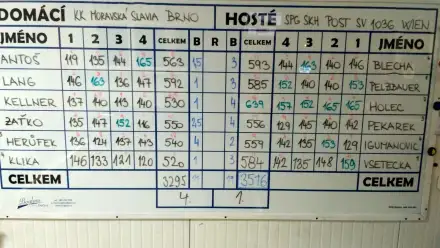 DOMÁCÍ KK MORAVSKÁ SLAVIA BRNO HOSTÉ SPG SKH POST SV 1036 WIEN
JMÉNO 1 2 3 4 CELKEM B R B CELKEM 4 3 2 1 JMÉNO
ANTOŠ 119 135 144 165 563 15 3 593 144 163 140 146 BLECHA
LANG 146 163 136 147 592 1 3 585 152 140 140 153 PELZBAUER
KELLNER 137 140 113 140 530 1 4 639 157 152 165 165 HOLEC
ZAŤKO 135 147 152 116 550 25 4 556 129 145 140 142 PEKAREK
HEŘUFEK 136 124 137 143 540 2 4 559 142 135 153 129 IGUMANOVIC
KLIKA 146 133 121 120 520 1 3 584 142 135 148 159 VSETECKA
CELKEM 3295 3516 CELKEM
4. 1.